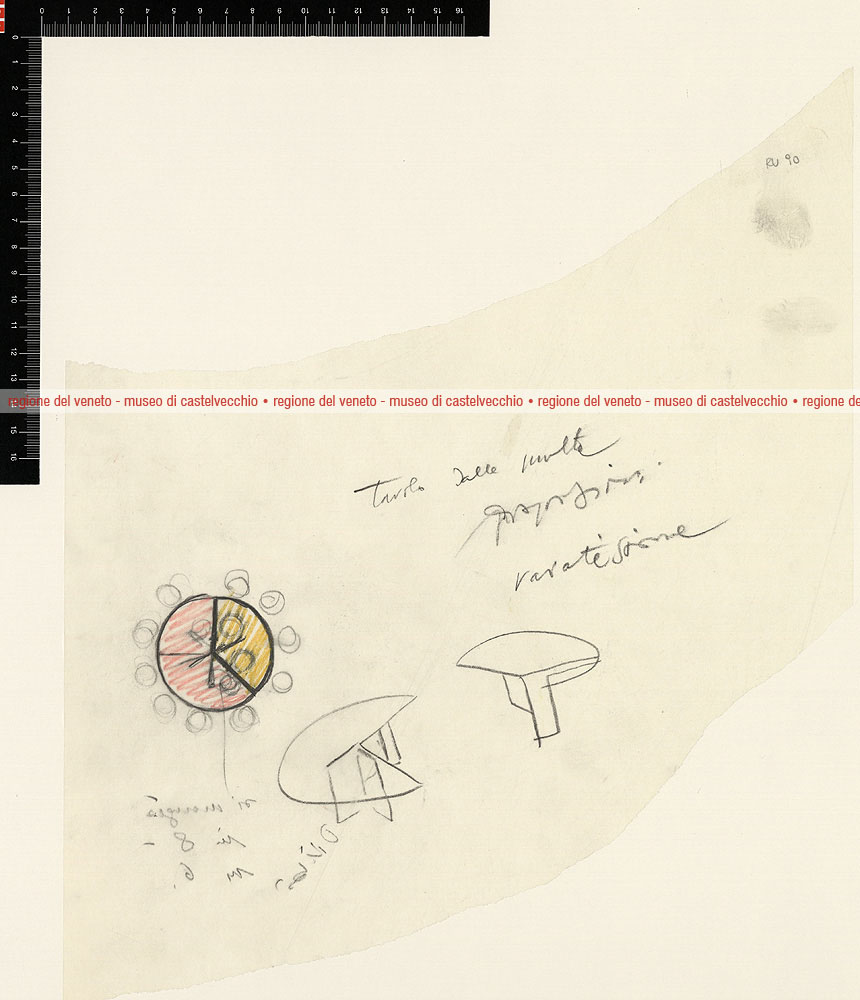 0 1 2 3 4 5 6 7 8 9 10 11 12 13 14 15 16
0 1 2 3 4 5 6 7 8 9 10 11 12 13 15 16
RV 90
regione del veneto - museo di castelvecchio • regione del veneto - museo di castelvecchio • regione del veneto - museo di castelvecchio • regione de
Tavolo dalle molte
proporzioni.
si mangia
in 8 -
in 6